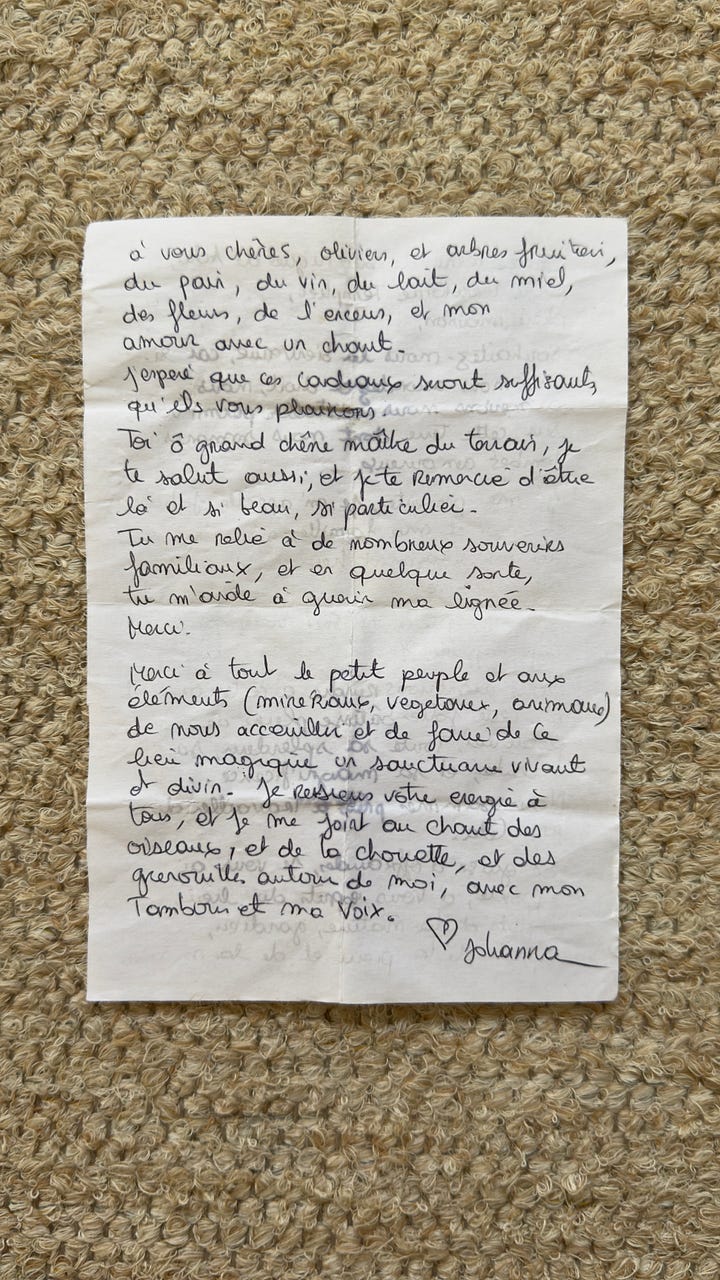 à vous chênes, oliviers, et arbres fruitiers,
du pain, du vin, du lait, du miel,
des fleurs, de l'encens, et mon
amour avec un chant.
J'espère que ces cadeaux seront suffisants,
qu'ils vous plairons
Toi ô grand chêne maître du terrain, je
te salut aussi, et je te Remercie d'être
là et si beau, si particulier.
Tu me relie à de nombreux souvenirs
familiaux, et en quelque sorte,
tu m'aide à guérir ma lignée.
Merci.
Merci à tout le petit peuple et aux
éléments (minéRaux, végétaux, animaux)
de nous accueillir et de faire de ce
lieu magique un sanctuaire vivant
et divin. Je Ressens votre énergie à
tous, et je me joint au chant des
oiseaux, et de la chouette, et des
grenouilles autour de moi, avec mon
Tambour et ma Voix.
Johanna